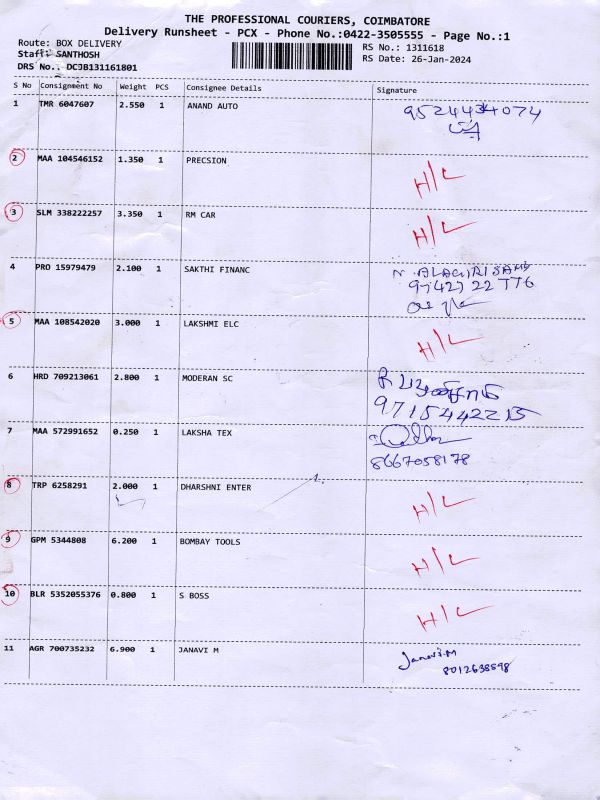 THE PROFESSIONAL COURIERS, COIMBATORE
Delivery Runsheet - PCX - Phone No.:0422-3505555 - Page No.:1
Route: BOX DELIVERY
RS No.: 1311618
Staff: SANTHOSH
RS Date: 26-Jan-2024
DRS No.: DCJB131161801
S No Consignment No Weight PCS Consignee Details Signature
1 TMR 6047607 2.550 1 ANAND AUTO 9524434074
2 MAA 104546152 1.350 1 PRECSION H/L
3 SLM 338222257 3.350 1 RM CAR H/L
4 PRO 15979479 2.100 1 SAKTHI FINANC N. ALAGIRISAMY
97427 22 776
5 MAA 108542020 3.000 1 LAKSHMI ELC H/L
6 HRD 709213061 2.800 1 MODERAN SC
9715442215
7 MAA 572991652 0.250 1 LAKSHA TEX
8667058178
8 TRP 6258291 2.000 1 DHARSHNI ENTER H/L
9 GPM 5344808 6.200 1 BOMBAY TOOLS H/L
10 BLR 5352055376 0.800 1 S BOSS H/L
11 AGR 700735232 6.900 1 JANAVI M Janavi.M
8012638898